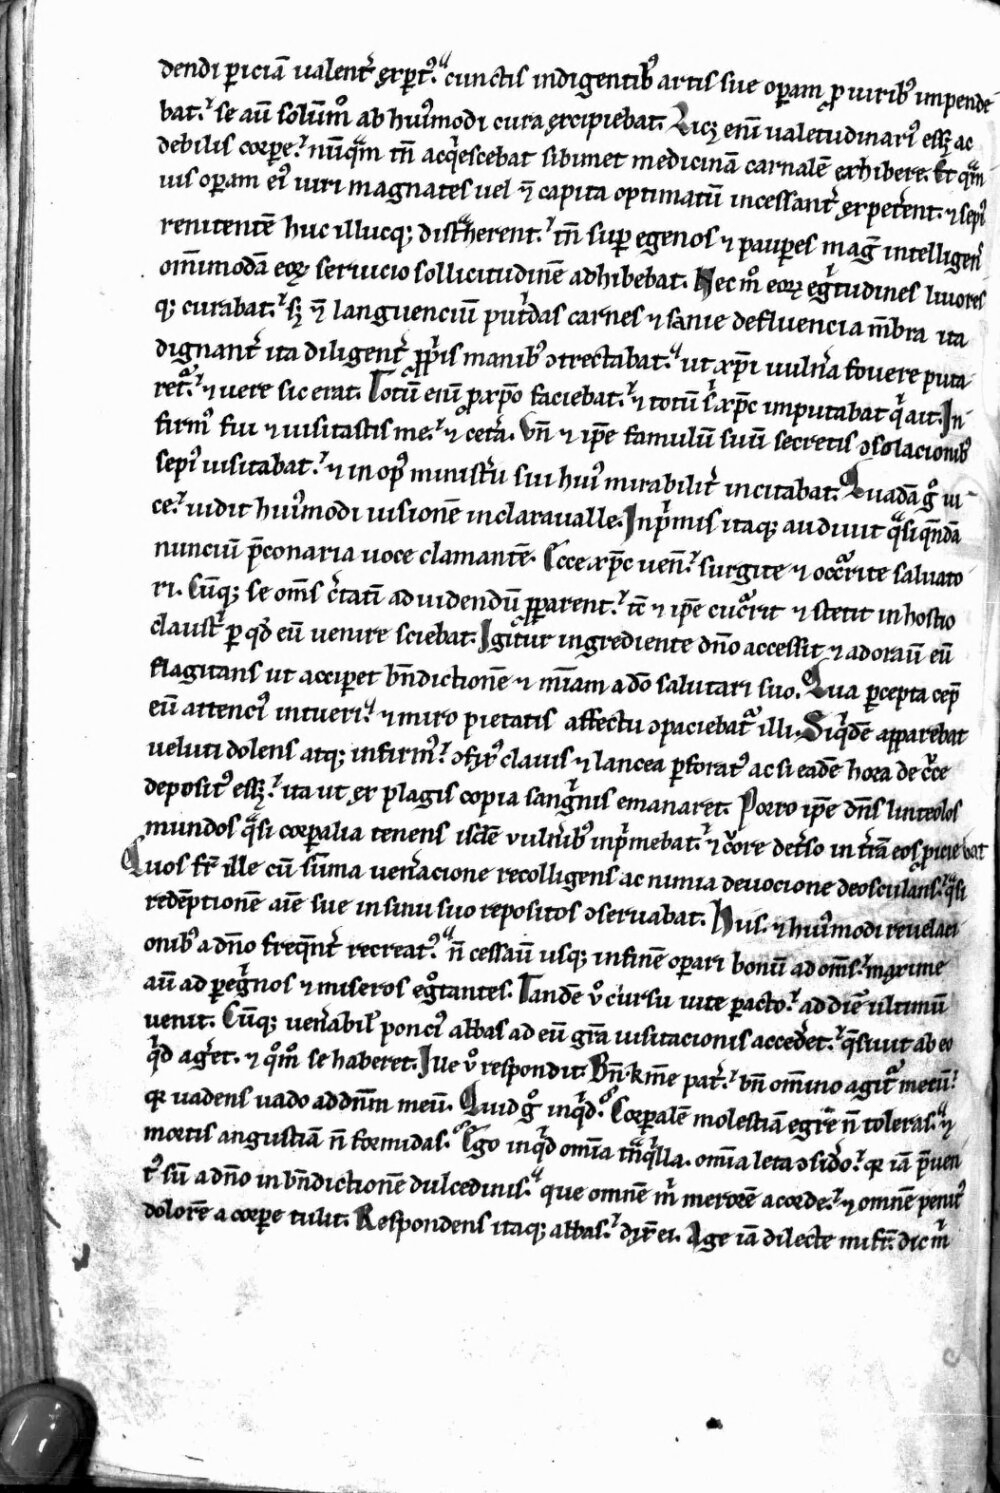 dendi periciā ualent̄ exptꝰ. cunctis indigentibꝰ artis sue opam ꝓ uiribꝰ impende
bat. se aū solūmͦ ab huiꝰmodi cura excipiebat. Licꝫ enī ualetudinariꝰ eēt ac
debilis corpe. nūqᵃm tn̄ acqⁱescebat sibimet medicinā carnalē exhibere. Et qᵃm
uis opam eiꝰ uiri magnates uel ⁊ capita optimatū incessant̄ expetent. ⁊ sepiꝰ
renitentē huc illucqꝫ distᵃherent. tn̄ sup egenos ⁊ paupes maḡ intelligens
omīmodā eoꝝ seruicio sollicitudinē adhibebat. Nec mͦ eoꝝ egⁱtudines liuores
qꝫ curabat. sꝫ ⁊ languenciū putⁱdas carnes ⁊ sanie defluencia mēbra ita
dignant̄ ita diligent̄ ꝓpⁱis manibꝰ ↄtrectabat. ut xp̄i uulnera fouere puta
retᵘ. ⁊ uere sic erat. Totū enī ꝓ xp̄o faciebat. ⁊ totū sⁱ xp̄c imputabat qⁱ ait. In
firmꝰ fui ⁊ uisitastis me. ⁊ cetᵃ. Vn̄ ⁊ ip̄e famulū suū secretis ↄsolacionibꝰ
sepiꝰ uisitabat. ⁊ in opꝰ ministerii sui huiꝰ mirabilit̄ incitabat. Quadā gͦ ui
ce. uidit huiꝰmodi uisionē in claraualle. Inpⁱmis itaqꝫ audiuit qᵃsi qn̄dā
nunciū p̄conaria uoce clamantē. Ecce xp̄c uenit. surgite ⁊ occᵘrrite saluato
ri. Cūqꝫ se om̄s c̄tatī ad uidendū p̄pararent. tē ⁊ ip̄e cucᵘrrit ⁊ stetit in hostio
claustⁱ p qd̄ eū uenire sciebat. Igitur ingrediente dn̄o accessit ⁊ adorauit eū
flagitans ut acciperet bn̄dictionē ⁊ mīam a dō salutari suo. Qua pcepta cepit
eū attenciꝰ intueri. ⁊ miro pietatis affectu ↄpaciebatᵘ illi. Siqⁱdē apparebat
ueluti dolens atqꝫ infirmꝰ. ↄfixꝰ clauis ⁊ lancea pforatꝰ ac si eadē hora de cᵘce
depositꝰ eēt. ita ut ex plagis copia sangⁱnis emanaret. Porro ip̄e dn̄s linteolos
mundos qᵃsi corpalia tenens isdē vulneribꝰ inpⁱmebat. ⁊ cᵘore det̄so in t̄rā eos ꝓiciebat
Quos fr̄ ille cū sūma uen̄acione recolligens ac nimia deuocione deosculans. qᵃsi
redēptionē aīe sue in sinu suo repositos ↄseruabat. Huiꝰ. ⁊ huiꝰmodi reuelaci
onibꝰ a dn̄o freqn̄t̄ recreatꝰ. n̄ cessauit usqꝫ in finē opari bonū ad om̄s. maxime
aū ad pegⁱnos ⁊ miseros egͦtantes. Tandē vͦ cursu uite pacto. ad diē ultimū
uenit. Cūqꝫ uen̄abilꝰ ponciꝰ abbas ad eū gr̄a uisitacionis accedet. qᵃsiuit ab eo
qⁱd aget. ⁊ qͦmͦ se haberet. Ille vͦ respondit. Bn̄ kme pat̄. bn̄ omīno agitᵘ mecū.
qꝛ uadens uado ad dnm̄ meū. Quid gͦ inqⁱd. Corpalē molestiā egre n̄ toleras. ⁊
mortis angustiā n̄ formidas. Ego inqⁱd omīa tn̄qⁱlla. omīa leta ↄsidͦo. qꝛ iā p̄uen
tꝰ sū a dn̄o in bn̄dictionē dulcedinis. que omnē mⁱ merorē a corde. ⁊ omnē penitꝰ
dolorē a corpe tulit. Respondens itaqꝫ abbas. dix̄ ei. Age iā dilecte mi fr̄. dic mⁱ